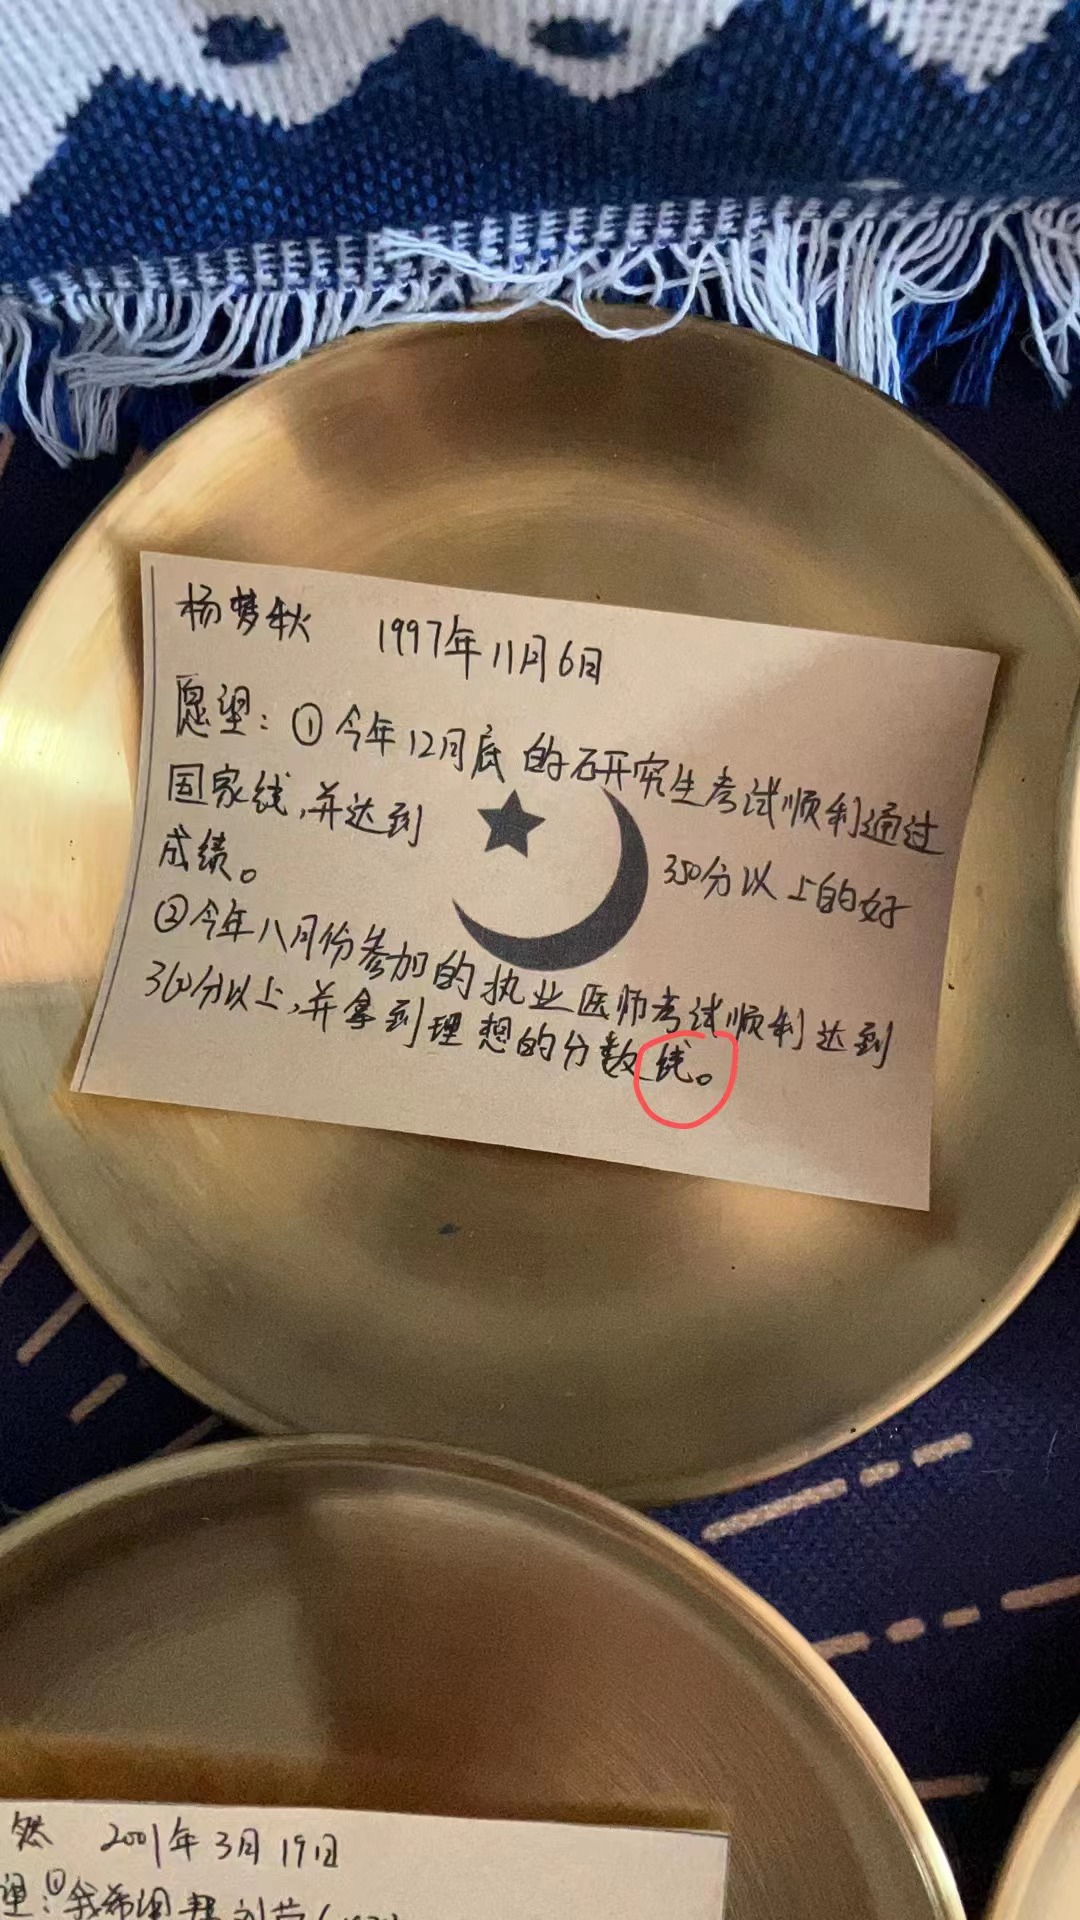 杨梦秋 1997年11月6日
愿望：①今年12月底的研究生考试顺利通过
国家线，并达到 350分以上的好
成绩。
②今年八月份参加的执业医师考试顺利达到
360分以上，并拿到理想的分数线。
然 2001年3月19日
望：①我希望帮